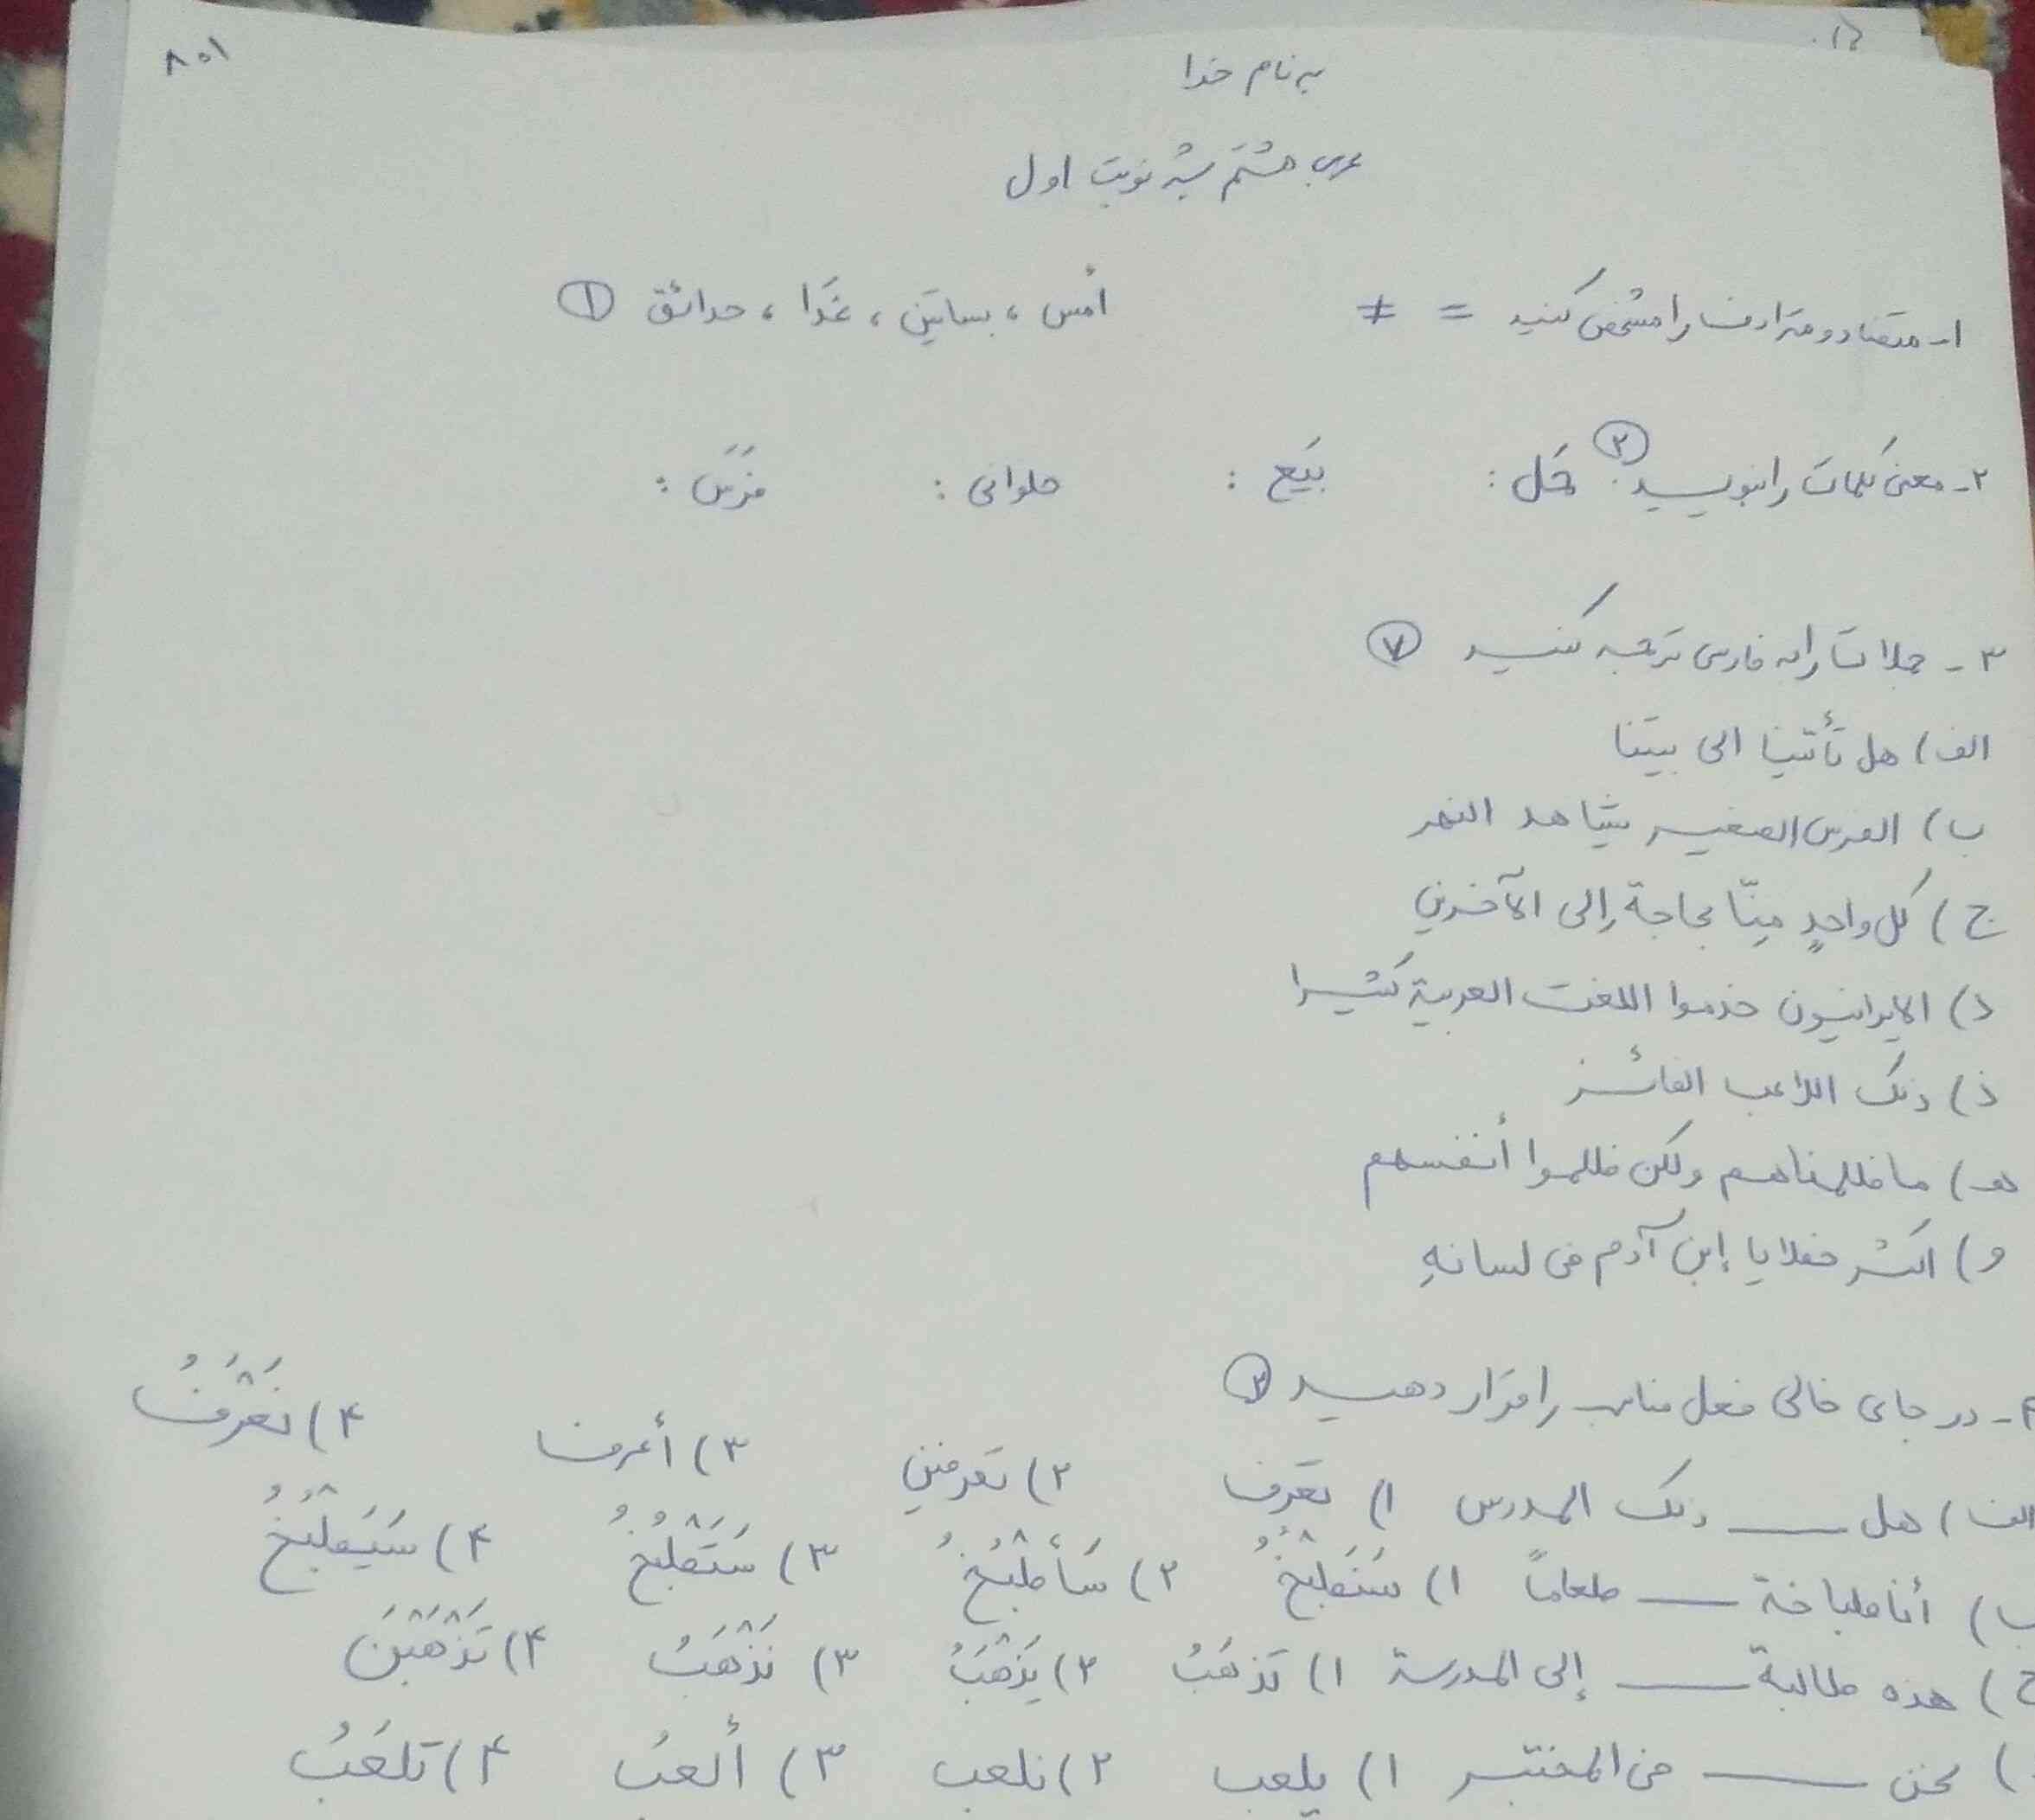 ۸۰۱
به نام خدا
عربی هشتم نوبت اول
۱- متضاد و مترادف را مشخص کنید = ≠ أمس ، بساتین ، غَدَا ، حدائق ①
۲- معنی کلمات را بنویسید ② حَل : بَیَع : حلوانی : فَرَس :
۳- جملات را به فارسی ترجمه کنید ⑦
الف) هل تأتینا الی بیتنا
ب) الفرس الصغیر یشاهد النهر
ج) کل واحدٍ مِنّا بحاجة إلی الآخرین
د) الایرانیون خدموا اللغت العربیة کثیرا
ذ) ذلک اللاعب الفائز
هـ) ما ظلمناهم ولکن ظلموا أنفسهم
و) اکثر خطایا إبن آدم فی لسانهِ
۴- در جای خالی فعل مناسب را قرار دهید
الف) هل ـــــ ذلک المدرس ۱) تعَرف ۲) تَعرفین ۳) أعرف ۴) نَعْرَفُ
ب) أنا طباخة ـــــ طعاماً ۱) سَنَطْبُخُ ۲) سَأطْبُخُ ۳) سَتَطْبُخُ ۴) سَیَطْبُخُ
ج) هذه طالبة ـــــ إلی المدرسة ۱) تَذهَبُ ۲) یَذْهَبُ ۳) نَذْهَبُ ۴) تَذْهَبْنَ
) نحن ـــــ فی المختبر ۱) یلعب ۲) نلعب ۳) ألعبُ ۴) تلعَبُ